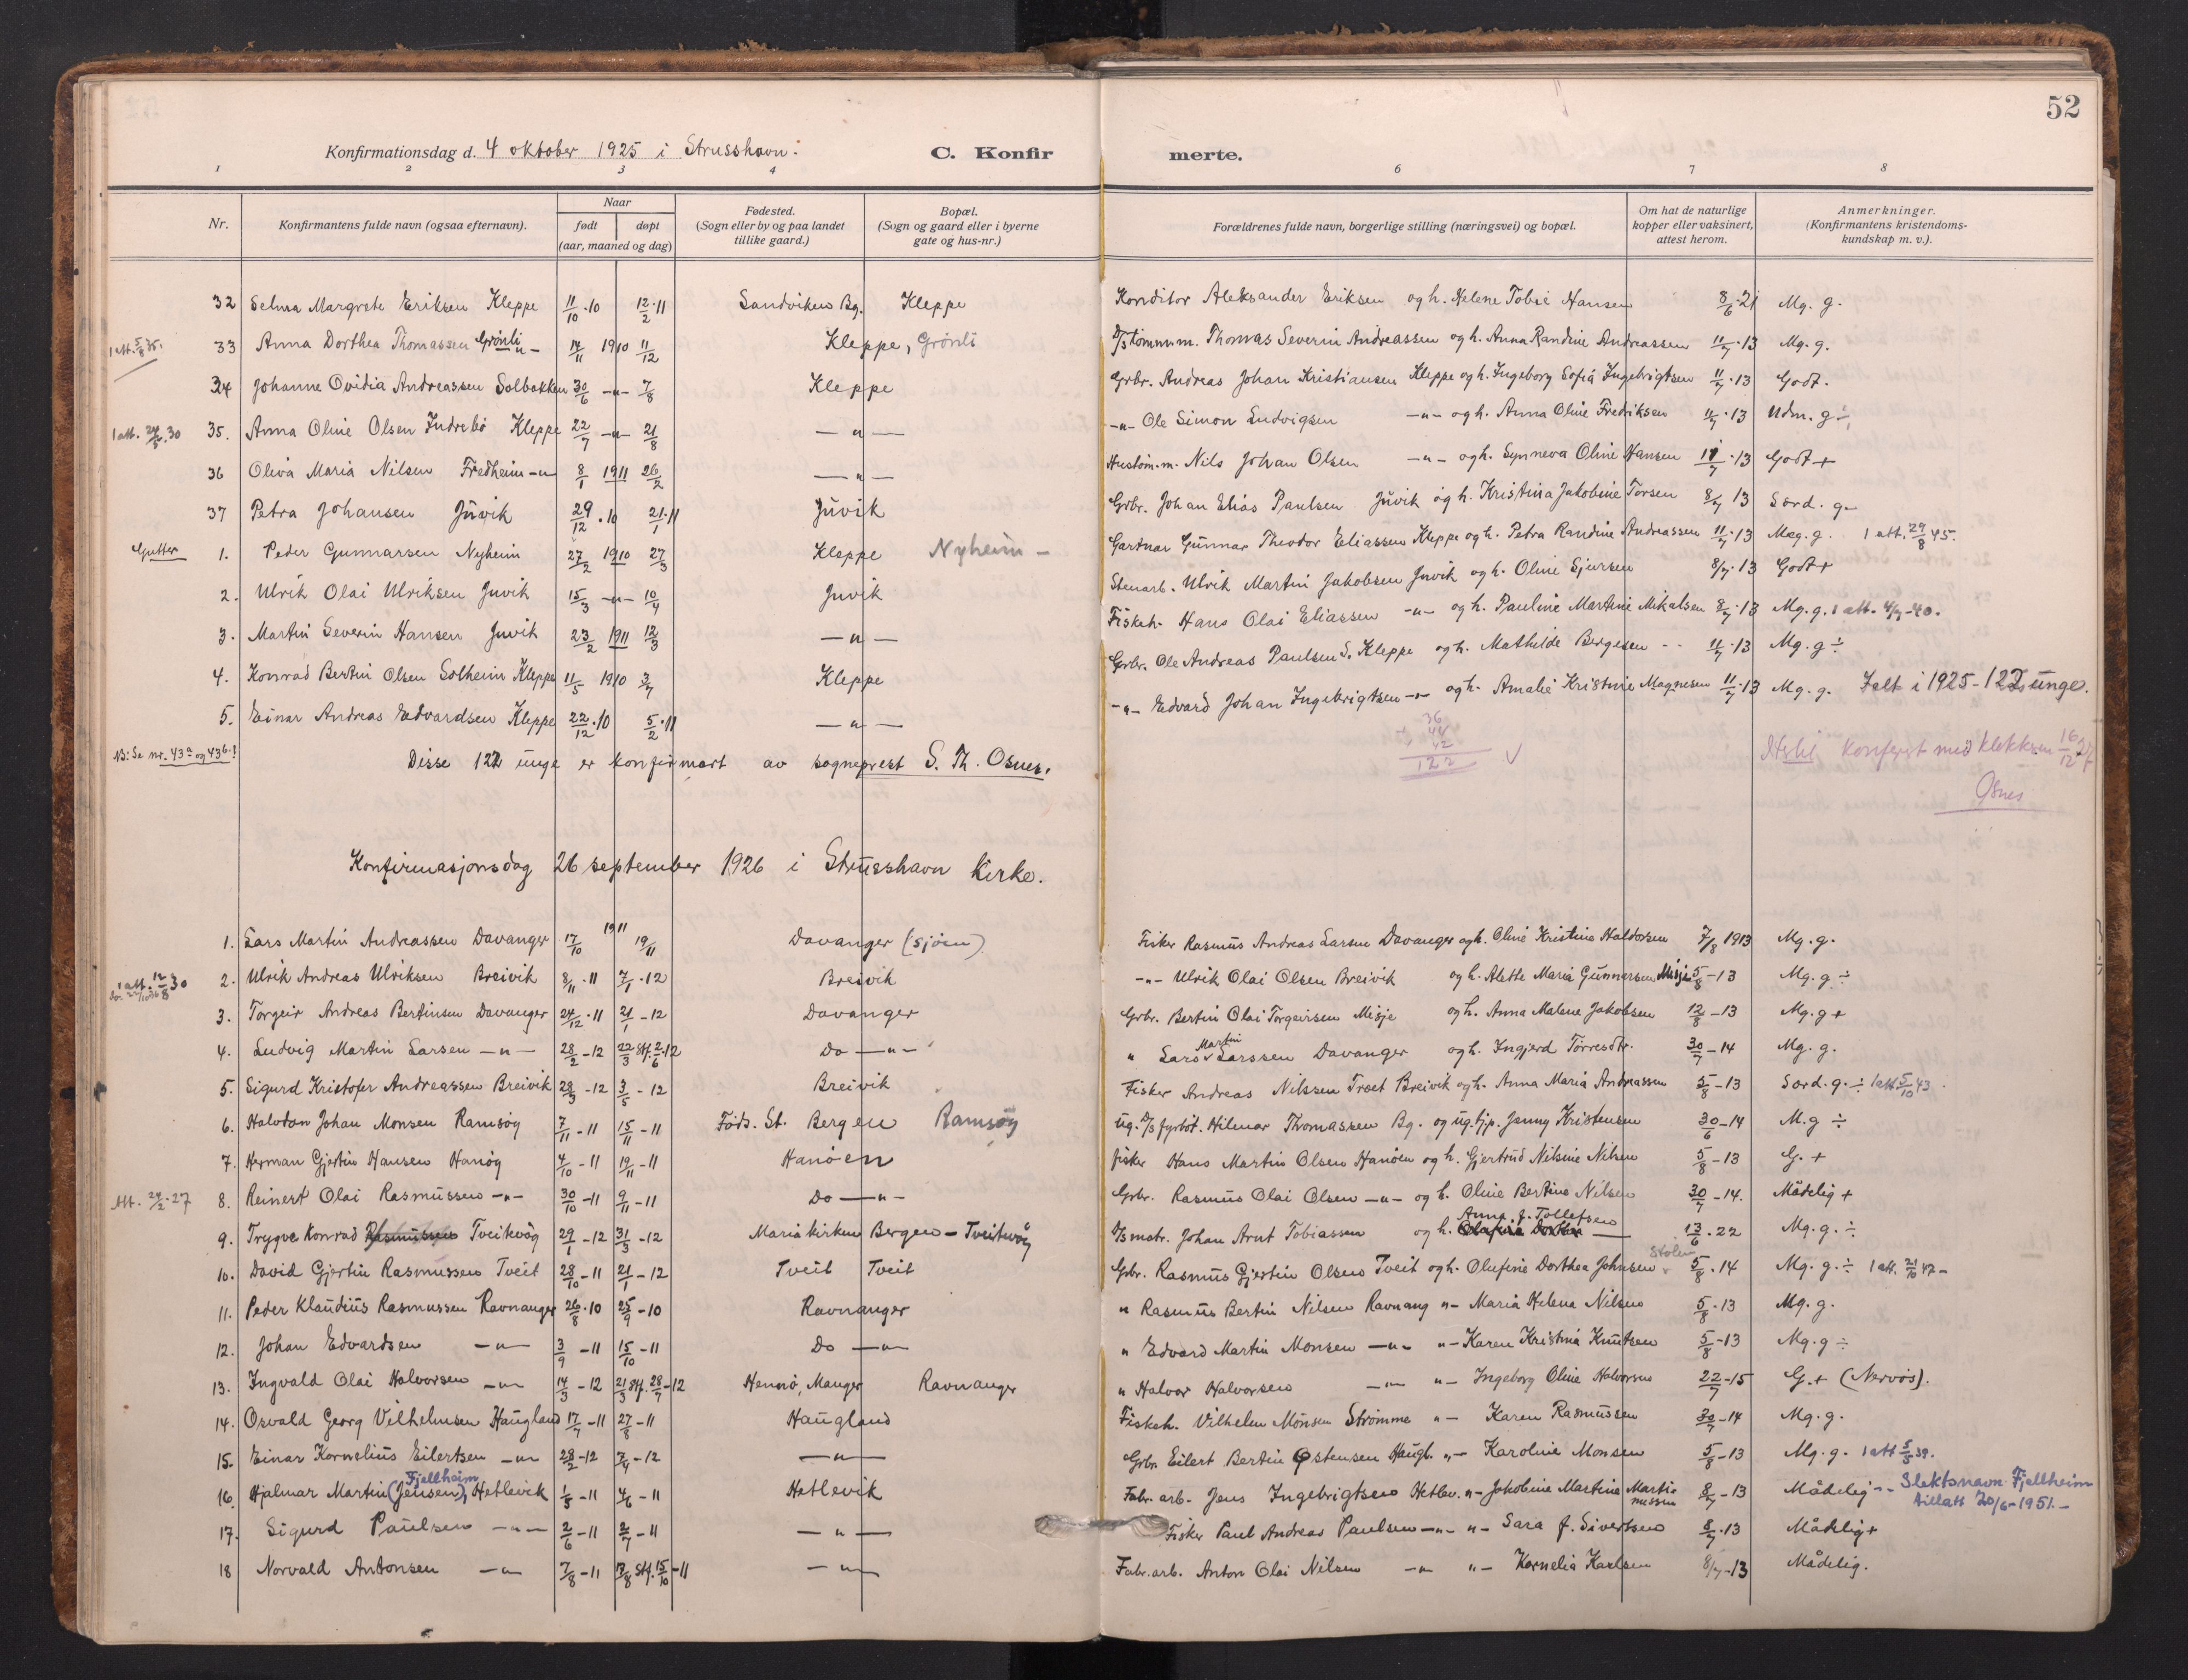 52
Konfirmationsdag d. 4 oktober 1925 i Strusshavn. C. Konfirmerte.
1 2 3 4 6 7 8
Nr. Konfirmantens fulde navn (ogsaa efternavn). Naar født døpt (aar, maaned og dag) Fødested. (Sogn eller by og paa landet tillike gaard.) Bopæl. (Sogn og gaard eller i byerne gate og hus-nr.) Forældrenes fulde navn, borgerlige stilling (næringsvei) og bopæl. Om hat de naturlige kopper eller vaksinert, attest herom. Anmerkninger. (Konfirmantens kristendoms-kundskap m. v.).
32 Selma Margrete Eriksen Kleppe 11/10.10 12/2.11 Sandviken Bg. Kleppe Konditor Aleksander Eriksen og h. Helene Tobie Hansen 8/6.21 Mg. g.
1 att. 5/8 35. 33 Anna Dorthea Thomassen Grönli -"- 14/11 1910 11/12 Kleppe, Grönli D/S tömmerm. Thomas Severin Andreassen og h. Anna Randine Andreassen 11/7.13 Mg. g.
34 Johanne Ovidia Andreassen Solbakken 30/6 -"- 7/8 Kleppe Grbr. Andreas Johan Kristiansen Kleppe og h. Ingeborg Sofia Ingebrigtsen 11/7.13 Godt.
1 att. 24/5.30 35. Anna Oline Olsen Indrebö Kleppe 22/7 -"- 21/8 -"- -"- Ole Simon Ludvigsen -"- og h. Anna Oline Fredriksen 11/7.13 Udm. g ÷
36 Oliva Maria Nilsen Fredheim -"- 8/1 1911 26/2 -"- Hustöm.m. Nils Johan Olsen -"- og h. Synneva Oline Hansen 11/7.13 Godt +
37 Petra Johansen Juvik 29/12.10 21/1.11 Juvik Grbr. Johan Elias Paulsen Juvik og h. Kristina Jakobine Torsen 8/7 13 Særd. g.
Gutter 1. Peder Gunnarsen Nyheim 27/2 1910 27/3 Kleppe Nyheim - Gartnar Gunnar Theodor Eliassen Kleppe og h. Petra Randine Andreassen 11/7.13 Meg. g. 1 att. 29/8 45.
2. Ulrik Olai Ulriksen Juvik 15/3 -"- 10/4 Juvik Stenarb. Ulrik Martin Jakobsen Juvik og h. Oline Sjursen 8/7.13 Godt +
3. Martin Severin Hansen Juvik 23/2 1911 12/3 -"- Fiskeh. Hans Olai Eliassen -"- og h. Pauline Martine Mikalsen 8/7.13 Mg. g. 1 att. 4/7-40.
4. Konrad Bertin Olsen Solheim Kleppe 11/5 1910 3/7 Kleppe Grbr. Ole Andreas Paulsen S. Kleppe og h. Mathilde Bergesen -- 11/7.13 Mg. g ÷
5. Einar Andreas Edvardsen Kleppe 22/12.10 5/2.11 -"- -"- Edvard Johan Ingebrigtsen -"- og h. Amalie Kristine Magnesen 11/7.13 Mg. g. I alt i 1925 - 122 unge.
NB: Se nr. 43a og 43b! Disse 122 unge er konfirmert av sogneprest S. Th. Osnes. 122 konferert med klokkeren 16/12 27
Osnes
Konfirmasjonsdag 26 september 1926 i Strusshavn Kirke.
1. Lars Martin Andreassen Davanger 17/10 1911 19/11 Davanger (sjöen) Fisker Rasmus Andreas Larsen Davanger og h. Oline Kristine Haldorsen 7/8 1913 Mg. g.
1 att. 12/8 30 2. Ulrik Andreas Ulriksen Breivik 8/11.11 7/1.12 Breivik -"- Ulrik Olai Olsen Breivik og h. Alette Maria Gunnarsen Misje 5/8-13 Mg. g ÷
3. Torgeir Andreas Bertinsen Davanger 24/12.11 21/1-12 Davanger Grbr. Bertin Olai Torgeirsen Misje og h. Anna Malene Jakobsen 12/8-13 Mg. g +
4. Ludvig Martin Larsen -"- 28/2-12 22/3 stf. 2/6.12 Do -"- " Lars Martin Larssen Davanger og h. Ingjerd Torresdtr. 30/7-14 Mg. g.
5. Sigurd Kristofer Andreassen Breivik 28/3-12 3/5-12 Breivik Fisker Andreas Nilssen Træt Breivik og h. Anna Maria Andreassen 5/8-13 Særd. g. ÷ 1 att. 5/10 43.
6. Halvdan Johan Monsen Ramsöy 7/11-11 15/11-11 Föds. St. Bergen Ramsöy ug. D/S fyrböt. Hilmar Thomassen Bg. og ug. tjp. Jenny Kristensen 30/6-14 M. g ÷
7. Herman Gjertin Hansen Hanöy 4/10-11 19/11-11 Hanöen fisker Hans Martin Olsen Hanöen og h. Gjertrud Nilsine Nilsen 5/8-13 G. +
Att. 24/2.27 8. Reinert Olai Rasmussen -"- 30/10-11 9/11-11 Do -"- Grbr. Rasmus Olai Olsen -"- og h. Oline Bertine Nilsen 30/7-14. Mådelig +
9. Trygve Konrad Tveitevåg 29/1-12 31/3-12 Mariakirken Bergen - Tveitevåg D/S matr. Johan Arnt Tobiassen og h. Anna J. Tollefsen 13/6.22 Mg. g. ÷
10. David Gjertin Rasmussen Tveit 28/10-11 21/1-12 Tveit Tveit Grbr. Rasmus Gjertin Olsen Tveit og h. Olufine Dorthea Johnsen Stölen 5/8.14 Mg. g. ÷ 1 att. 21/10 47 -
11. Peder Klaudius Rasmussen Ravnanger 26/8.10 25/9-10 Ravnanger " Rasmus Bertin Nilsen Ravnang "- Maria Helena Nilsen 5/8.13 Mg. g.
12. Johan Edvardsen -"- 3/9-11 15/10-11 Do -"- " Edvard Martin Monsen -"- "- Karen Kristina Knutsen 5/8-13 Mg. g ÷
13. Ingvald Olai Halvorsen -"- 14/3-12 21/3 stf. 28/7-12 Hennö, Manger Ravnanger " Halvor Halvorsen -"- "- Ingeborg Oline Halvorsen 22/7-15 G. + (Nervös).
14. Osvald Georg Vilhelmsen Haugland 17/7-11 27/8-11 Haugland Fiskeh. Vilhelm Monsen Strömme "- Karen Rasmussen 30/7-14 Mg. g.
15. Einar Kornelius Eilertsen -"- 28/2-12 7/4-12 -"- Grbr. Eilert Bertin Østensen Haugl. "- Karoline Monsen 5/8-13 Mg. g. 1 att 5/5 39.
16. Hjalmar Martin (Jensen) Fjellheim, Hetlevik 1/5-11 4/6-11 Hetlevik Fabr. arb. Jens Ingebrigtsen Hetlev. "- Jakobine Martine Martinussen 8/7-13 Mådelig -- Slektsnavn Fjellheim tillatt 20/6-1951.-
17. Sigurd Paulsen -"- 2/6-11 2/7-11 -"- Fisker Paul Andreas Paulsen -"- "- Sara J. Sivertsen 8/7.13 Mådelig +
18 Norvald Antonsen -"- 7/8-11 13/8 stf. 15/10-11 -"- Fabr. arb. Anton Olai Nilsen -"- "- Kornelia Karlsen 8/7-13 Mådelig.